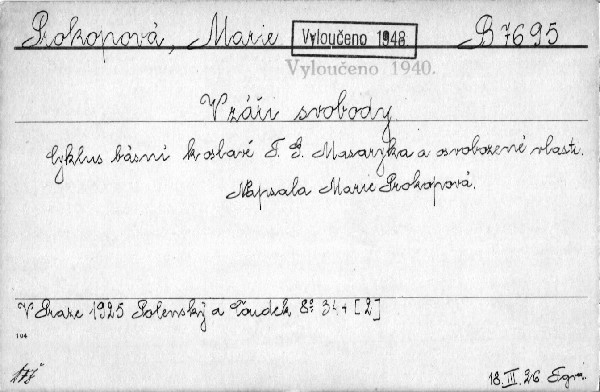 Prokopová, Marie Vyloučeno 1948 B 7695
Vyloučeno 1940.
V záři svobody
Cyklus básní k oslavě T. G. Masaryka a osvobozené vlasti.
Napsala Marie Prokopová.
V Praze 1925 Polenský a Coudek 8° 34 + [2]
104
18. III. 26